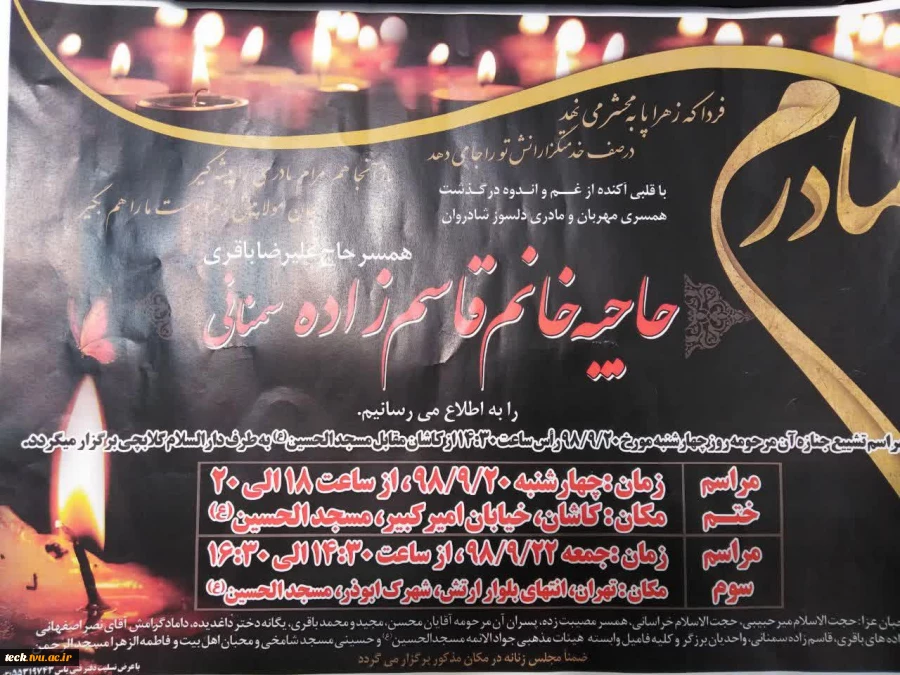 مادرم
فردا که زهرا پا به محشر می نهد
درصف خدمتگزارانش تو را جا می دهد
آنجا هم مرام مادری را پیشه گیر
جان مولا دست ما را هم بگیر
با قلبی آکنده از غم و اندوه درگذشت
همسری مهربان و مادری دلسوز شادروان
همسر حاج علیرضا باقری
حاجیه خانم قاسم زاده سمنانی
را به اطلاع می رسانیم.
مراسم تشییع جنازه آن مرحومه روز چهارشنبه مورخ ۹۸/۹/۲۰ رأس ساعت ۱۴:۳۰ از کاشان مقابل مسجد الحسین (ع) به طرف دارالسلام کلابچی برگزار میگردد.
مراسم ختم
زمان : چهارشنبه ۹۸/۹/۲۰، از ساعت ۱۸ الی ۲۰
مکان : کاشان، خیابان امیر کبیر، مسجد الحسین (ع)
مراسم سوم
زمان : جمعه ۹۸/۹/۲۲، از ساعت ۱۴:۳۰ الی ۱۶:۳۰
مکان : تهران، انتهای بلوار ارتش، شهرک ابوذر، مسجد الحسین (ع)
حبان عزا: حجت الاسلام میرحبیبی، حجت الاسلام خراسانی، همسر مصیبت زده، پسران آن مرحومه آقایان محسن، مجید و محمد باقری، یگانه دختر داغدیده، داماد گرامش آقای نصر اصفهانی
اده های باقری، قاسم زاده سمنانی، واحدیان برزگر و کلیه فامیل وابسته هیئات مذهبی جواد الائمه مسجد الحسین (ع) و حسینی مسجد شامخی و محبان اهل بیت و فاطمه الزهرا مسجد الرحمن
ضمناً مجلس زنانه در مکان مذکور برگزار می گردد
با عرض تسلیت دفتر فنی یاس ۵۵۳۱۹۷۴۳
tech.tvu.ac.ir